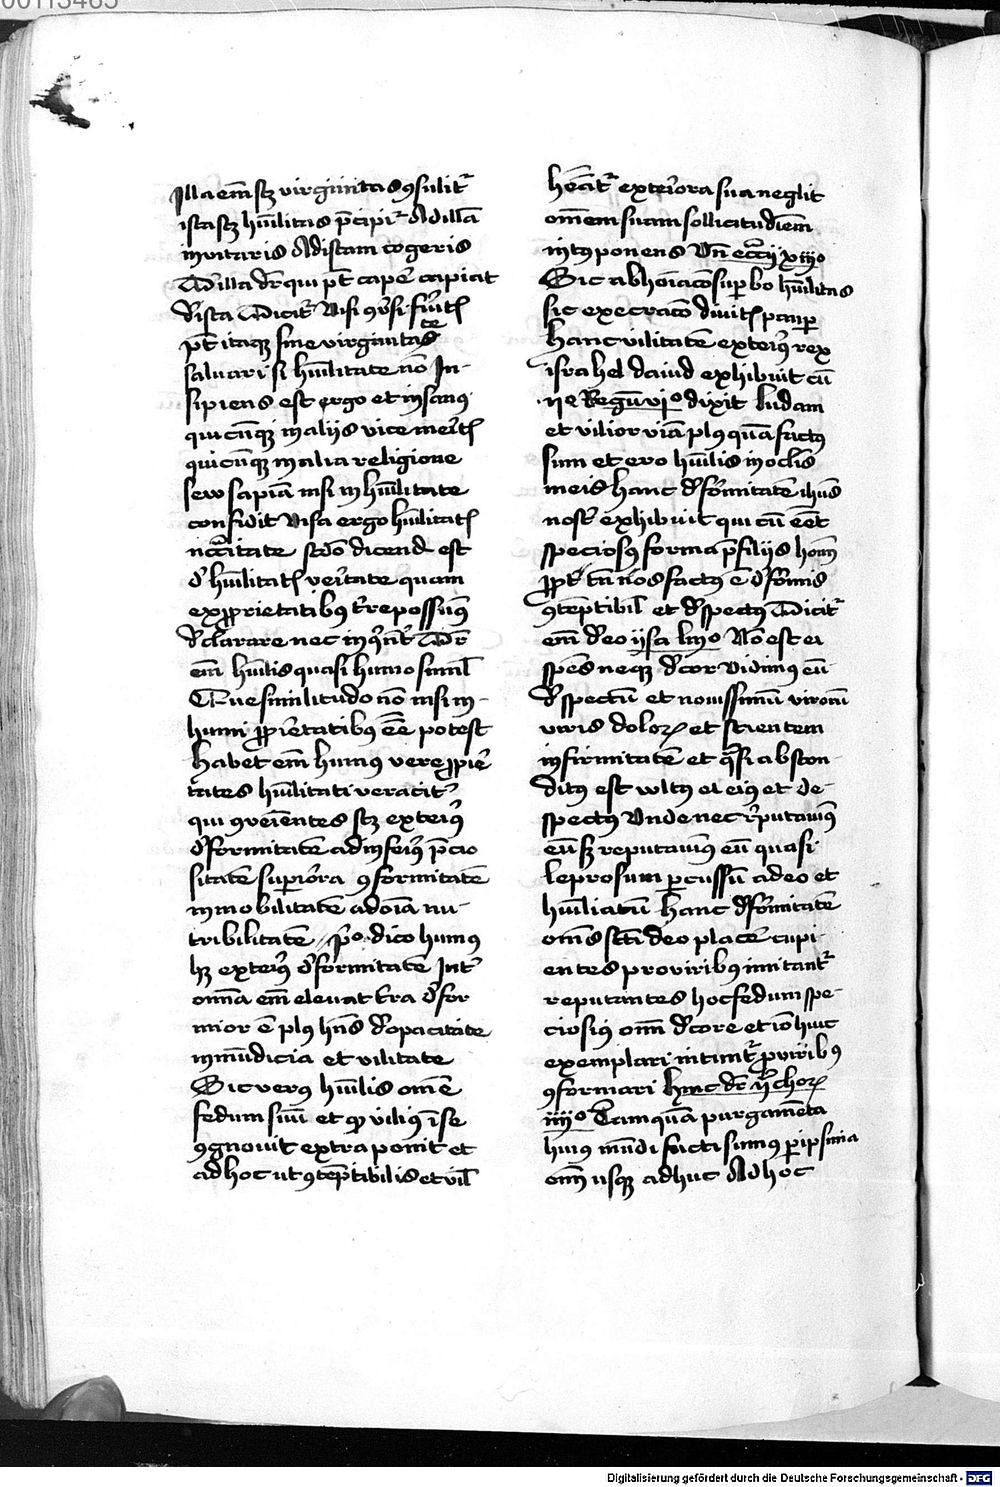 00113465
Illa em̄ scz virginitas ꝯsulit᷑
ista scz hūilitas p̄cipit᷑ Ad illā
invitaris Ad istam cogeris
De illa dr̄ qui pt̄ cape᷑ capiat
de ista dicit᷑ Nisi ꝯu᷑si fu᷑itis
pt̄ itaqꝫ sine virginitate
saluari sꝫ hūilitate nō In-
sipiens est ergo et insanꝰ
qui cūqꝫ in alijs vite meritis
qui cūqꝫ in alia religione
seu sapiā nisi in hūilitate
confidit Visa ergo hūilitatis
nc̄citate scdo dicend est
de hūilitatis veritate quam
ex ꝓprietatibꝰ t᷑re possumꝰ
declarare nec in ꝯue᷑nt᷑ Dr̄
em̄ hūilis quasi humo simil̄
Que similitudo nō nisi in-
humi ꝓprietatibꝰ ēē potest
Habet em̄ humꝰ vere ꝓprie-
tates hūilitati veracit᷑
qui ꝯuenientes scz exteriꝰ
deformitatē ad inferiꝰ p̄cio
sitatē superiora ꝯformitatē
immobilitatē ad oīa nu-
tribilitatē // pͦ dico humꝰ
hꝫ exteriꝰ deformitatē Int᷑
omnia em̄ elemēta t᷑ra defor
mior ē plꝰ hn̄s de opacitate
inmūdicia et vilitate
Sic verꝰ hūilis omē
fedum suū et qꝫ viliꝰ ī se
ꝯgnouit extra ponit et
ad hoc ut ꝯtēptibilis et vil̄
hēat᷑ exteriora sua neglit
omem suam sollicitudiem
intꝰ ponens Vn̄ ecci xiijo
Sic abhoīacō superbo hūilitas
sic execracō diuitis paup
hanc vilitatē exteriꝰ rex
israhel dauid exhibuit cū
ijo Regū vio dixit ludam
et vilior viā plꝰ quā factꝰ
sum et ero hūilis in oclis
meis hanc deformitatē ihūs
nost᷑ exhibuit qui cū eēt
speciosꝰ forma p̄ filijs homī
ꝓpt᷑ tn̄ nos factꝰ ē deformis
ꝯtēptibil̄ et despectꝰ Dicit᷑
em̄ deo ysa liijo Nō est ei
spēs neqꝫ decor vidimꝰ eū
despectū et nouissimū virorū
viris doloꝝ et scientem
infirmitatē et qᷓsi abscon-
ditꝰ est wltꝰ ei eiꝰ et de-
spectꝰ Vnde nec reputauimꝰ
eū sꝫ reputauimꝰ eū quasi
leprosum ꝑcussū a deo et
hūiliatū Hanc deformitatē
om̄s scti deo placē᷑ cupi-
entes pro viribꝰ imitant᷑
reputantes hoc fedum spe-
ciosiꝰ omī decore et iō huic
exemplari intimt᷑ ꝓ viribꝰ
ꝯformari hinc dr̄ ij choꝝ
iiijo Tamquā purgamēta
huiꝰ mūdi facti sumꝰ peripsima
omī usqꝫ adhuc Ad hoc
Digitalisierung gefördert durch die Deutsche Forschungsgemeinschaft - DFG